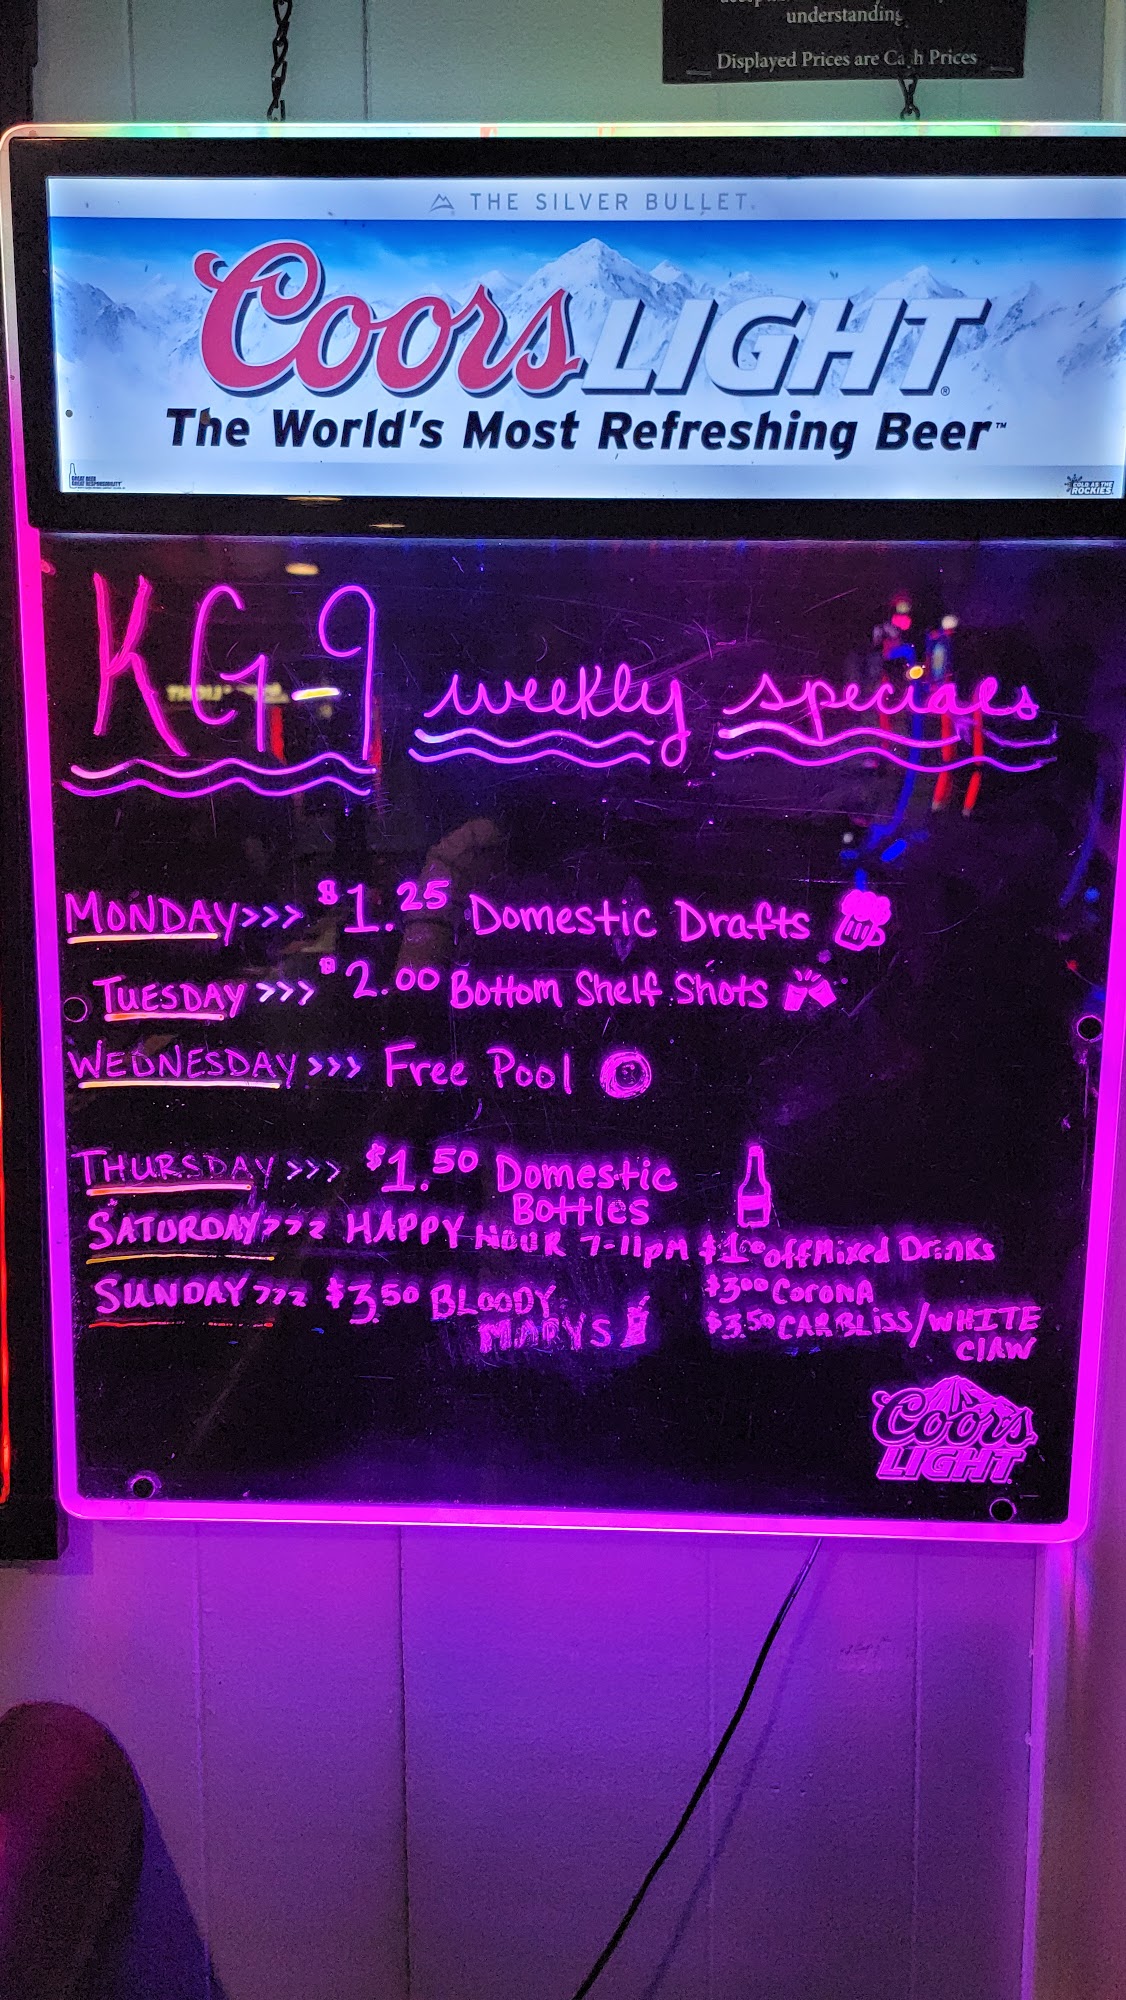 understanding
Displayed Prices are Cash Prices
THE SILVER BULLET.
Coors LIGHT®
The World's Most Refreshing Beer™
GREAT BEER
GREAT RESPONSIBILITY
COLD AS THE
ROCKIES
KG-9 weekly specials
MONDAY>>> $1.25 Domestic Drafts
TUESDAY >>> $2.00 Bottom Shelf Shots
WEDNESDAY >>> Free Pool
THURSDAY >>> $1.50 Domestic
Bottles
SATURDAY>>> HAPPY HOUR 7-11pm $1.00 off Mixed Drinks
$3.00 Corona
SUNDAY >>> $3.50 BLOODY
MARYS
$3.50 CARBLISS/WHITE
CLAW
Coors
LIGHT